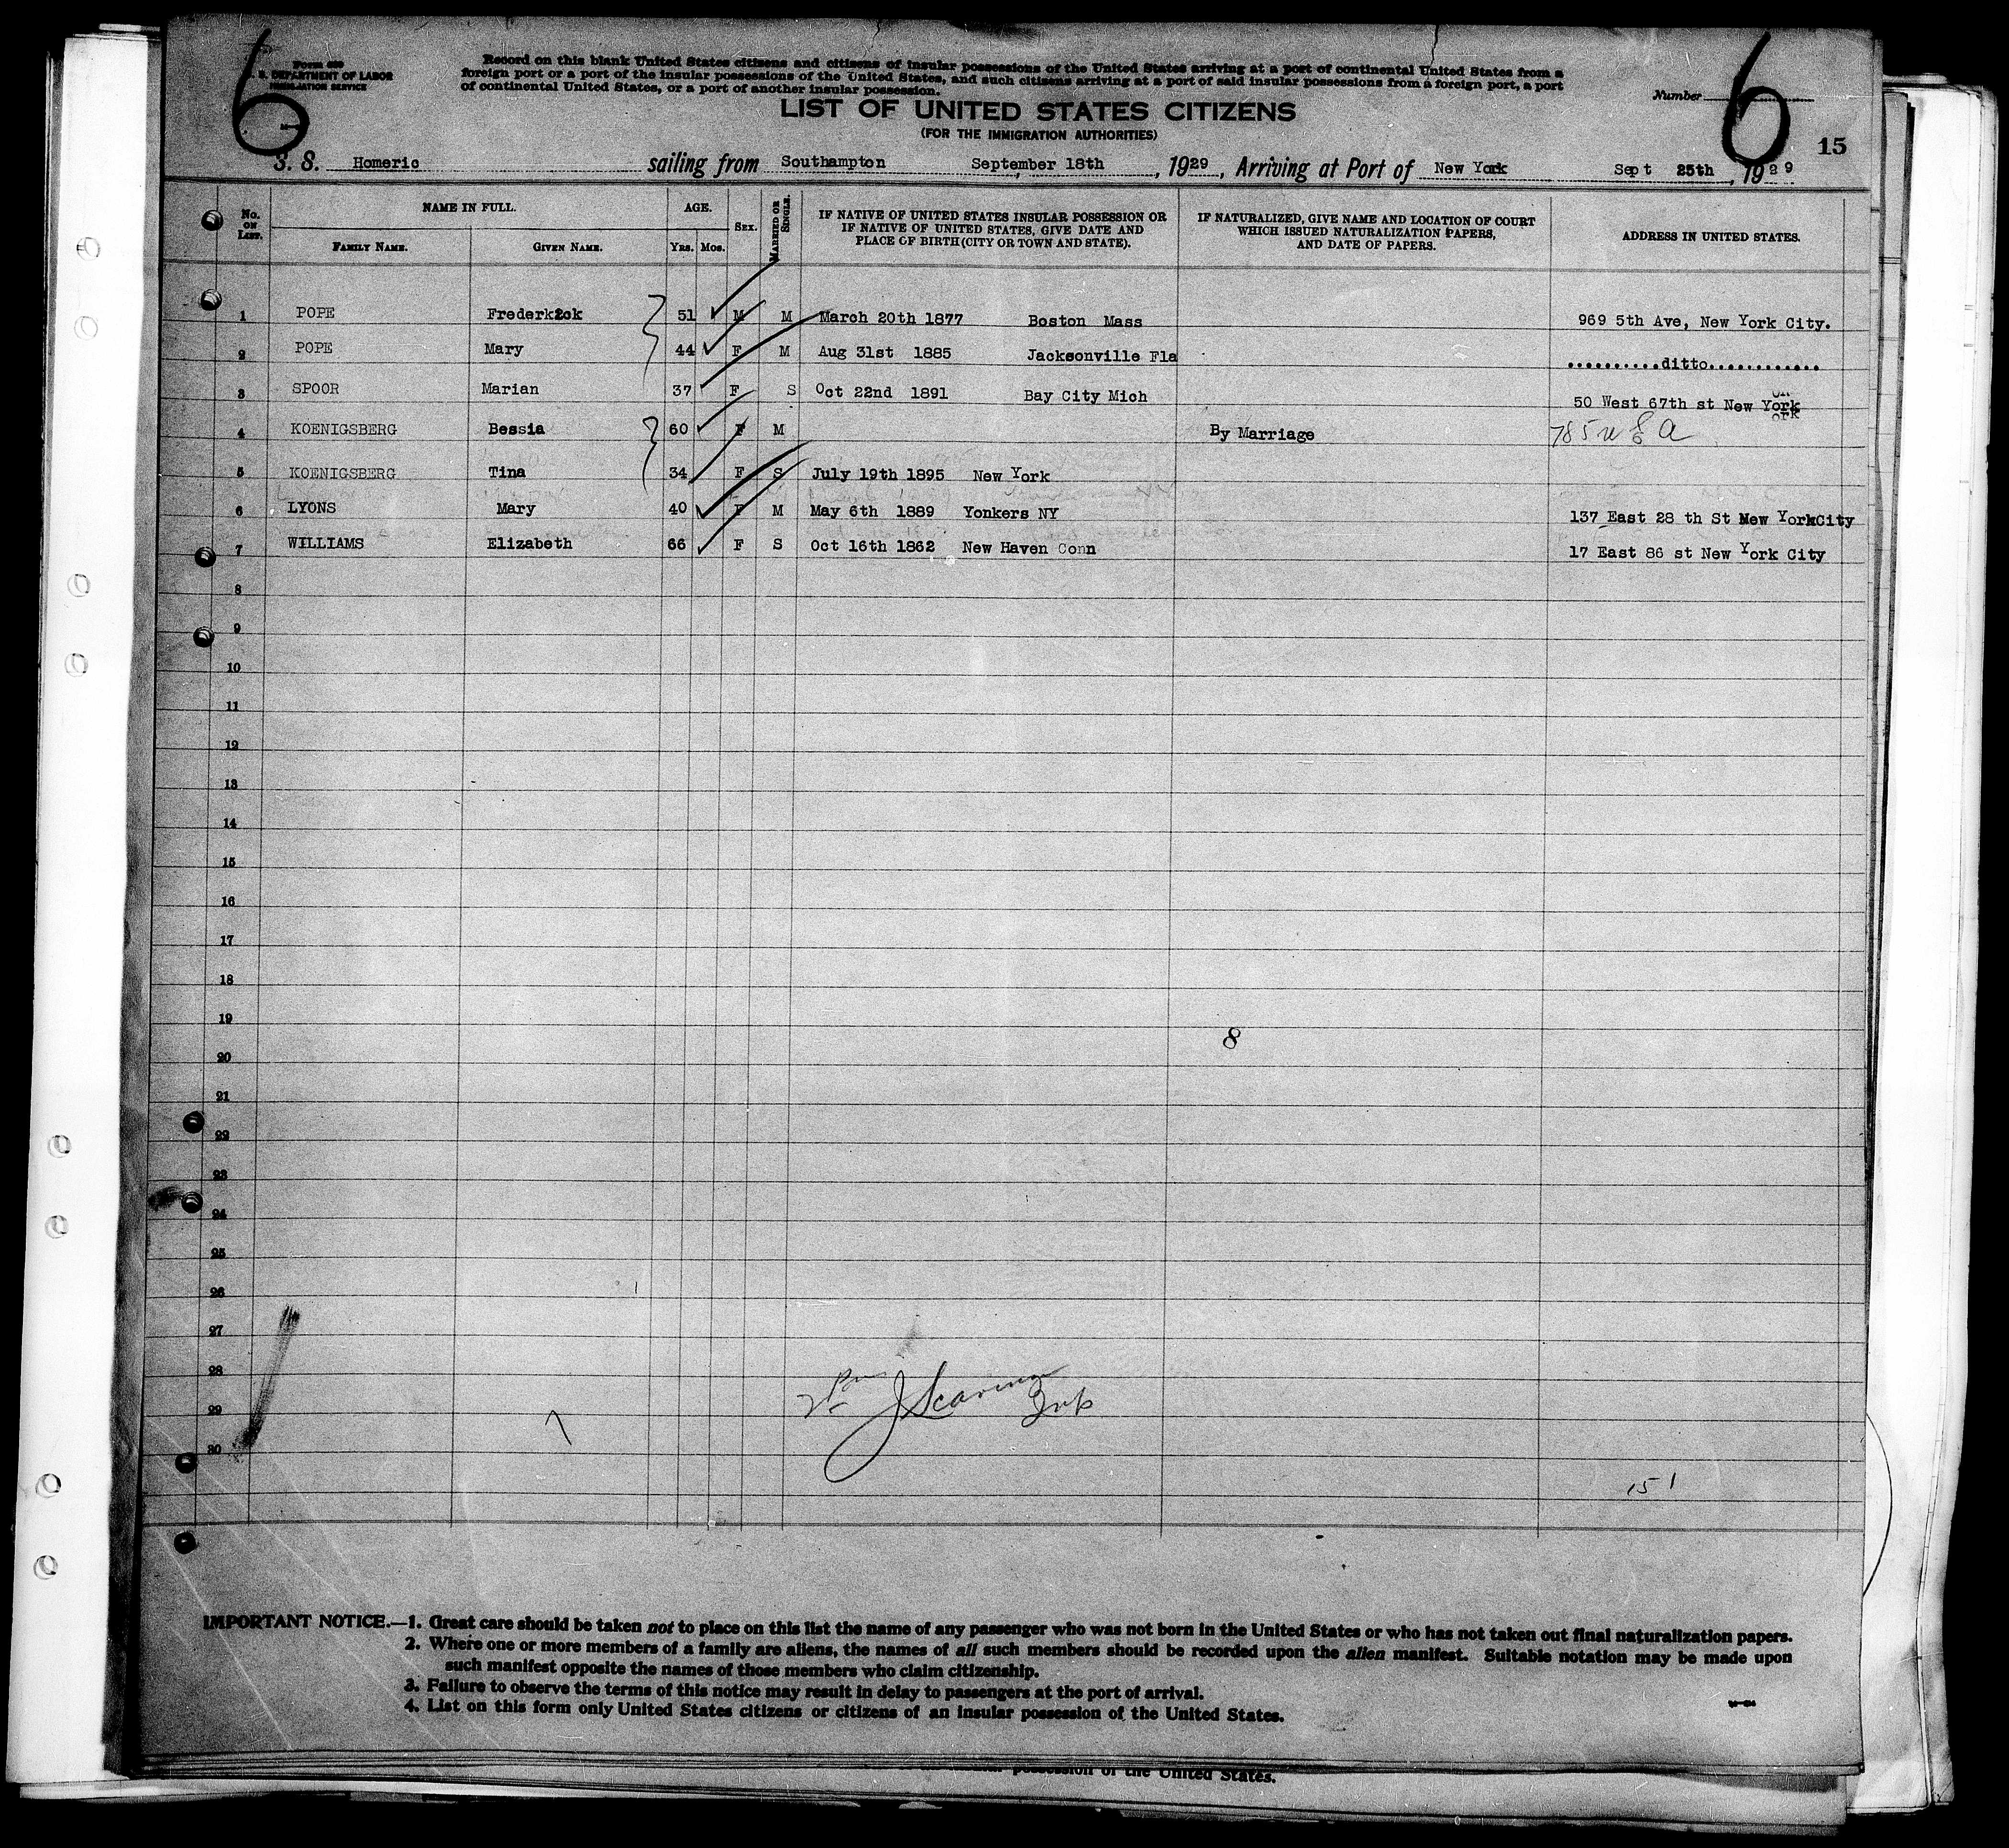 6
6
Form 630
U. S. DEPARTMENT OF LABOR
IMMIGRATION SERVICE
Record on this blank United States citizens and citizens of insular possessions of the United States arriving at a port of continental United States from a
foreign port or a port of the insular possessions of the United States, and such citizens arriving at a port of said insular possessions from a foreign port, a port
of continental United States, or a port of another insular possession.
Number
LIST OF UNITED STATES CITIZENS
(FOR THE IMMIGRATION AUTHORITIES)
15
S. S. Homeric sailing from Southampton September 18th, 1929, Arriving at Port of New York Sept 25th, 1929
No. ON LIST. NAME IN FULL. AGE. SEX. MARRIED OR SINGLE. IF NATIVE OF UNITED STATES INSULAR POSSESSION OR IF NATIVE OF UNITED STATES, GIVE DATE AND PLACE OF BIRTH (CITY OR TOWN AND STATE). IF NATURALIZED, GIVE NAME AND LOCATION OF COURT WHICH ISSUED NATURALIZATION PAPERS, AND DATE OF PAPERS. ADDRESS IN UNITED STATES.
FAMILY NAME. GIVEN NAME. YRS. MOS.
1 POPE Frederick 51 M M March 20th 1877 Boston Mass 969 5th Ave, New York City.
2 POPE Mary 44 F M Aug 31st 1885 Jacksonville Fla ..........ditto............
3 SPOOR Marian 37 F S Oct 22nd 1891 Bay City Mich 50 West 67th st New York
4 KOENIGSBERG Bessia 60 F M By Marriage
5 KOENIGSBERG Tina 34 F S July 19th 1895 New York
6 LYONS Mary 40 F M May 6th 1889 Yonkers NY 137 East 28 th St New YorkCity
7 WILLIAMS Elizabeth 66 F S Oct 16th 1862 New Haven Conn 17 East 86 st New York City
8
9
10
11
12
13
14
15
16
17
18
19
8
20
21
22
23
24
25
26
27
28
29
30
151
IMPORTANT NOTICE.—1. Great care should be taken not to place on this list the name of any passenger who was not born in the United States or who has not taken out final naturalization papers.
2. Where one or more members of a family are aliens, the names of all such members should be recorded upon the alien manifest. Suitable notation may be made upon
such manifest opposite the names of those members who claim citizenship.
3. Failure to observe the terms of this notice may result in delay to passengers at the port of arrival.
4. List on this form only United States citizens or citizens of an insular possession of the United States.
possession of the United States.